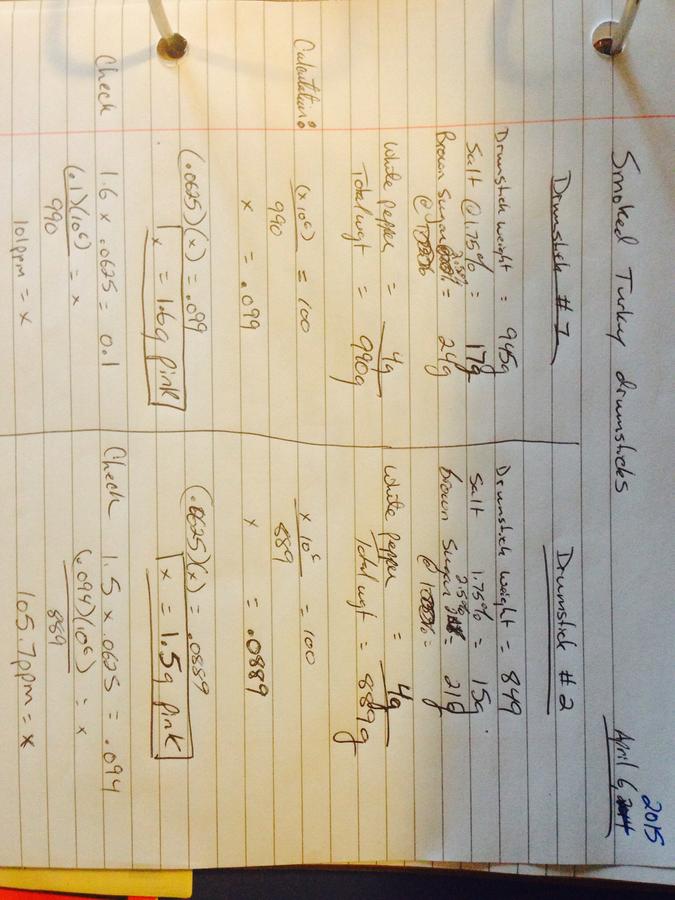 2015
Smoked Turkey drumsticks
April 6,
Drumstick # 1
Drumstick weight = 945g
Salt @ 1.75% = 17g
Brown Sugar 2.5% = 24g
@
White pepper = 4g
Total wgt = 990g
Calculation:
(x 10⁶) / 990 = 100
x = .099
(.0625)(x) = .099
x = 1.6g pink
Check 1.6 x .0625 = 0.1
(.1)(10⁶) / 990 = x
101ppm = x
Drumstick # 2
Drumstick weight = 849
Salt 1.75% = 15g
Brown Sugar 2.5% = 21g
@ =
White pepper = 4g
Total wgt = 889g
x 10⁶ / 889 = 100
x = .0889
(.0625)(x) = .0889
x = 1.5g pink
Check 1.5 x .0625 = .094
(.094)(10⁶) / 889 = x
105.7ppm = x